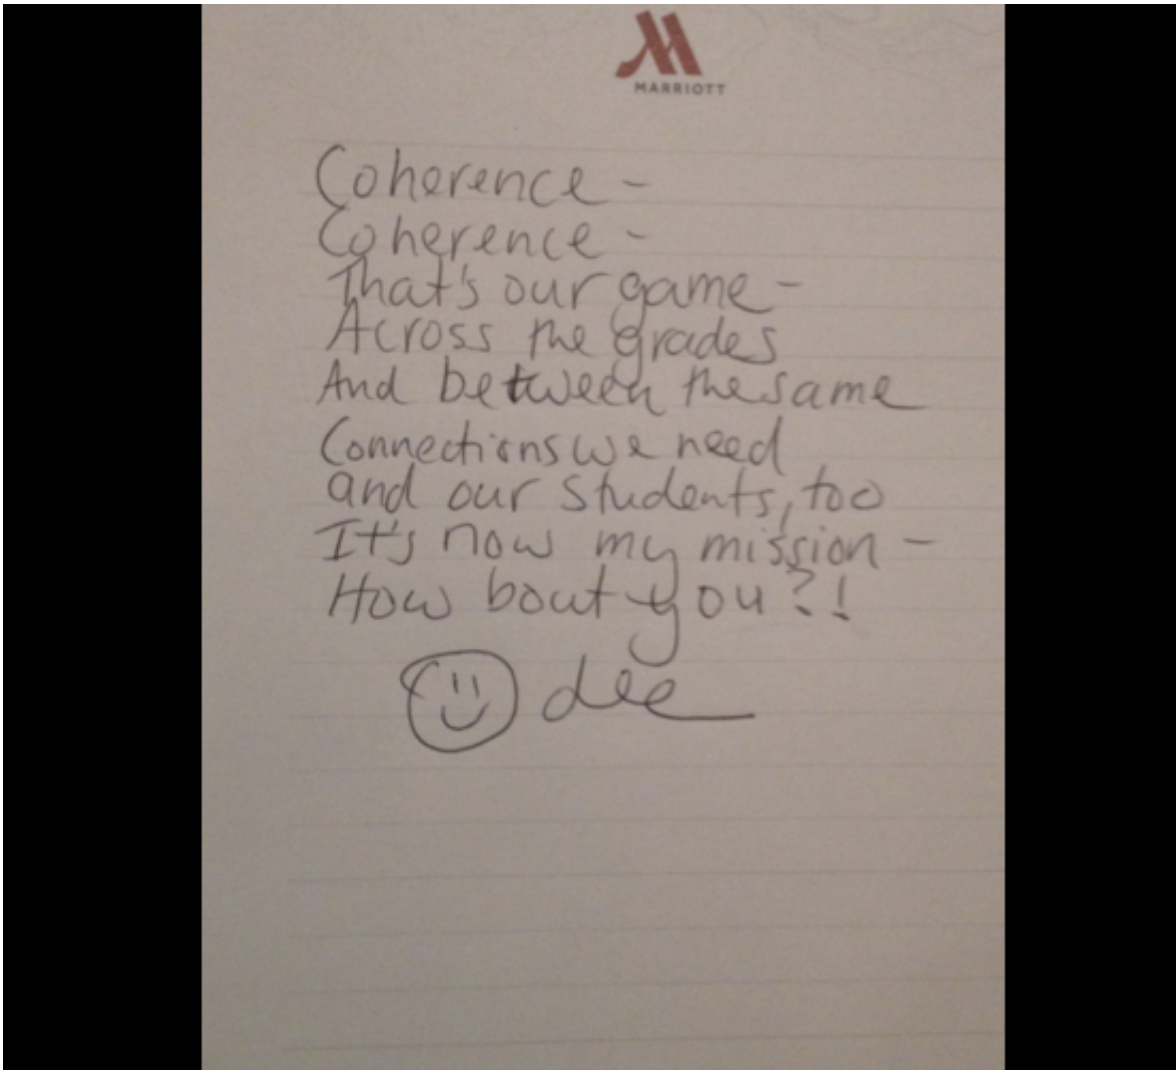 MARRIOTT
Coherence -
Coherence -
That's our game -
Across the grades
And between the same
Connections we need
and our students, too
It's now my mission -
How bout you?!
dee